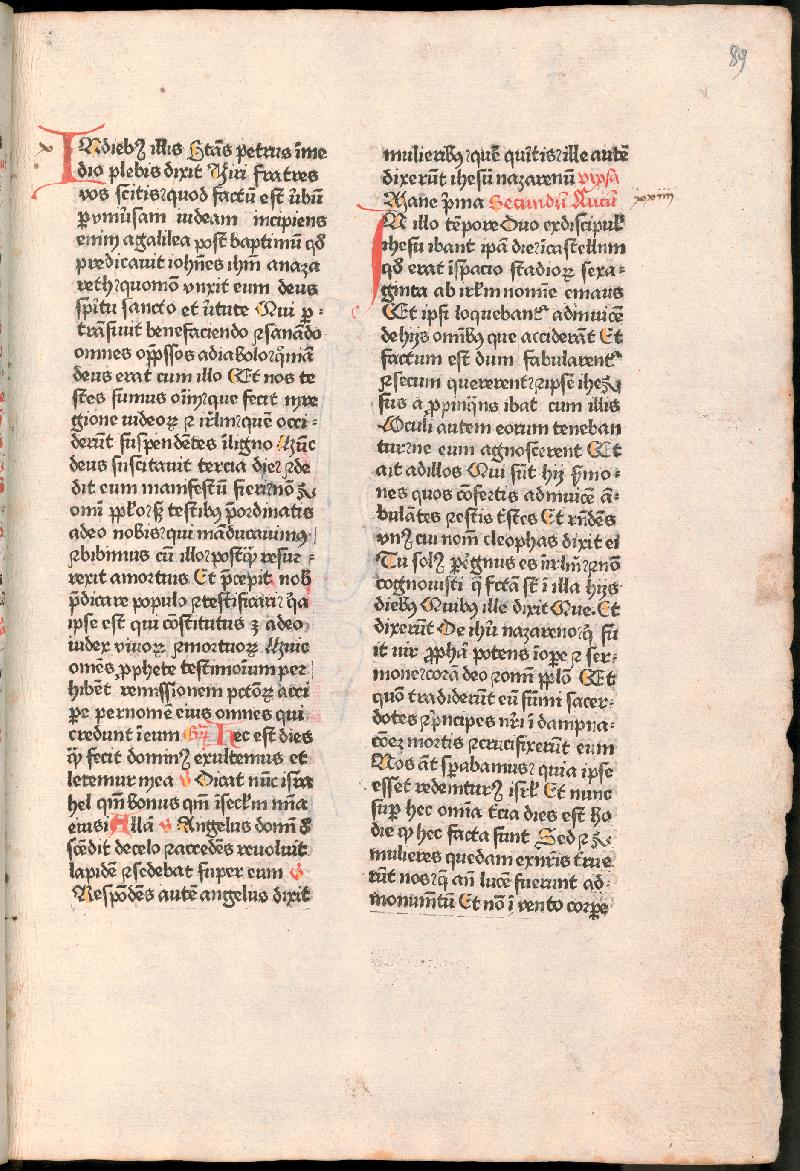 89
x
INdiebꝫ illis Stās petrus īme
dio plebis dixit Viri fratres
vos scitis quod factū est v̉bū
ꝑ vniu̓sam iudeam incipiens
enim agalilea post baptimū qd̓
predicauit ioh̄nes ih̄m anaza
reth quomō vnxit eum deus
spiritu sancto et v̉tute Qui ꝑ
trāsiuit benefaciendo ⁊sanādo
omnes opp̄ssos adiabolo qm̄
deus erat cum illo Et nos te
stes sumus oīm que fecit inre
gione iudeoꝝ ⁊ irl̄m quē occi
derūt suspendētes īligno Hūc
deus suscitauit tercia die ⁊de
dit eum manifestū fieri nō
omī ppl̄o sꝫ testibꝰ p̄ordinatis
adeo nobis qui māducauimꝰ
⁊bibimus cū illo postqͣ̄ resur
rexit amortuis Et p̄cepit nob̄
p̄dicare populo ⁊testificari qͥa
ipse est qui cōstitutus ē adeo
iudex viuoꝝ ⁊mortuoꝝ Huic
omēs ꝓphete testimoīum per
hibēt remissionem pctōꝝ acci
pe pernomē eius omnes qui
credunt īeum Gr̄ Hec est dies
qͣ̄ fecit dominꝰ exultemus et
letemur inea v̓ Dicat nūc isra
hel qm̄ bonus qm̄ īsecl̄m m̄ia
eius Allā v̓ Angelus domī d̓
scēdit decelo ⁊accedēs reuoluit
lapidē ⁊sedebat super eum v̓
Respōdēs autē angelus dixit
mulieribꝰ quē quītis ille autē
dixerūt ihesū nazarenū
Mane p̄ma Secundū Lucū xxiiij
IN illo tēpore Duo exdiscipul̄
ihesu ibant ipā die īcastellum
qd̓ erat īspacio stadioꝝ sexa
ginta ab irl̄m nomīe emaus
Et ipsi loquebantᷣ adinuicē
dehijs omībꝰ que acciderāt Et
factum est dum fabularentᷣ
⁊secum quererent ⁊ipse ihe
sus appinqͣns ibat cum illis
Oculi autem eorum teneban
tur ne eum agnoscerent Et
ait adillos Qui sūt hij s̓mo
nes quos cōfertis adinuicē ā
bulātes ⁊estis t̓stes Et rn̄dēs
vnꝰ cui nom̄ cleophas dixit ei
Tu solꝰ ꝑegnus es īirl̄m ⁊nō
cognouisti q̄ fctā st̄ ī illa hijs
diebꝰ Quibus ille dixit Que Et
dixerūt De ih̄u nazareno qͥ fu
it uir ꝓphā potens īope ⁊ ser
mone corā deo ⁊omī ppl̄o Et
quō tradiderūt eū sūmi sacer
dotes ⁊p̄ncipes nr̄i ī dampna
cōeꝫ mortis ⁊crucifixerūt eum
Nos āt sꝑabamus quia ipse
esset redemturꝰ isrl̄ Et nunc
suꝑ hec omīa t̓cia dies est ho
die qͣ hec facta sunt Sed ⁊
mulieres quedam exnr̄is t̓rue
rūt nos qͥ an̄ lucē fuerunt ad
monum̄tū Et nō ī vento corꝑe